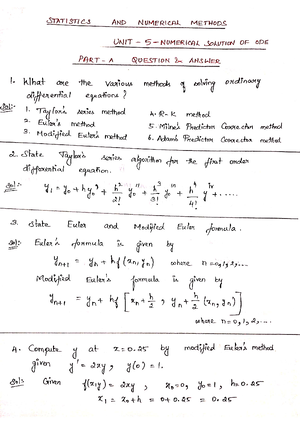 STATISTICS AND NUMERICAL METHODS
UNIT - 5 - NUMERICAL SOLUTION OF ODE
PART - A QUESTION & ANSWER
1. What are the various methods of solving ordinary
differential equations?
Sol: 1. Taylor's series method 4. R-K method
2. Euler's method 5. Milne's Predictor Corrector method
3. Modified Euler's method 6. Adam's Predictor Corrector method
2. State Taylor's series algorithm for the first order
differential equation.
Sol: y₁ = y₀ + hy₀' + h²/2! y₀'' + h³/3! y₀''' + h⁴/4! yⁱᵛ + .....
3. State Euler and Modified Euler formula.
Sol: Euler's formula is given by
yₙ₊₁ = yₙ + hf(xₙ, yₙ) where n = 0,1,2,...
Modified Euler's formula is given by
yₙ₊₁ = yₙ + hf[xₙ + h/2, yₙ + h/2 (xₙ, yₙ)]
where n = 0,1,2,...
4. Compute y at x = 0.25 by modified Euler's method
given y' = 2xy, y(0) = 1.
Sol: Given f(x,y) = 2xy, x₀ = 0, y₀ = 1, h = 0.25
x₁ = x₀ + h = 0 + 0.25 = 0.25